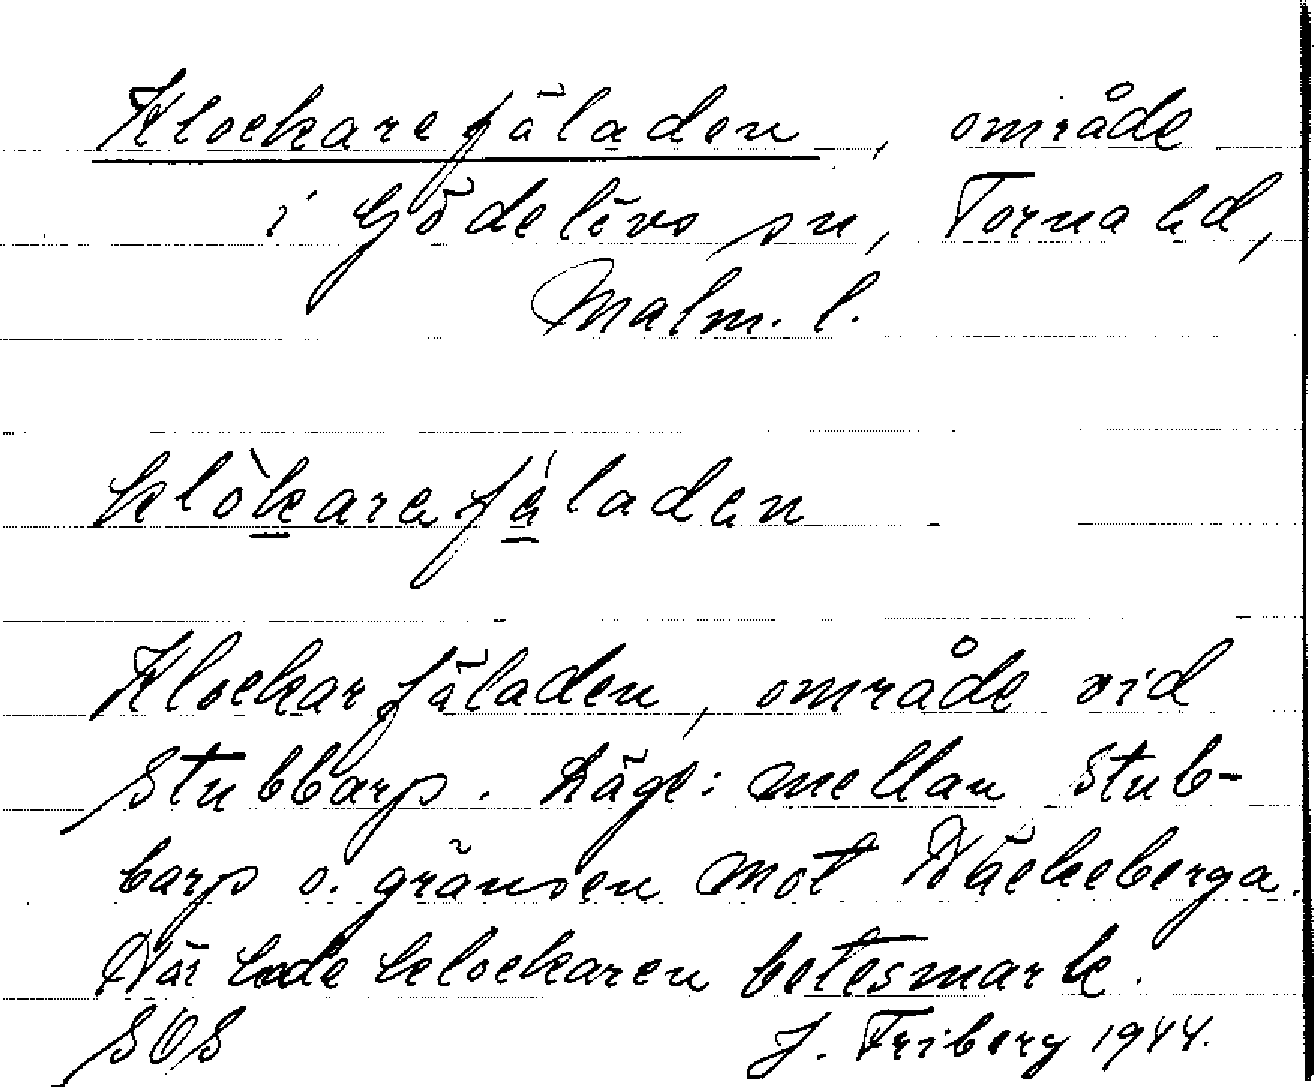 Klockarefäladen, område
i Gödelövs sn, Torna hd,
Malm. l.
klòkarefáladen
Klockarfäladen, område vid
Stubbarp. Läge: mellan Stub-
barp o. gränsen mot Häckeberga.
Här hade klockaren betesmark.
SOS J. Friberg 1944.